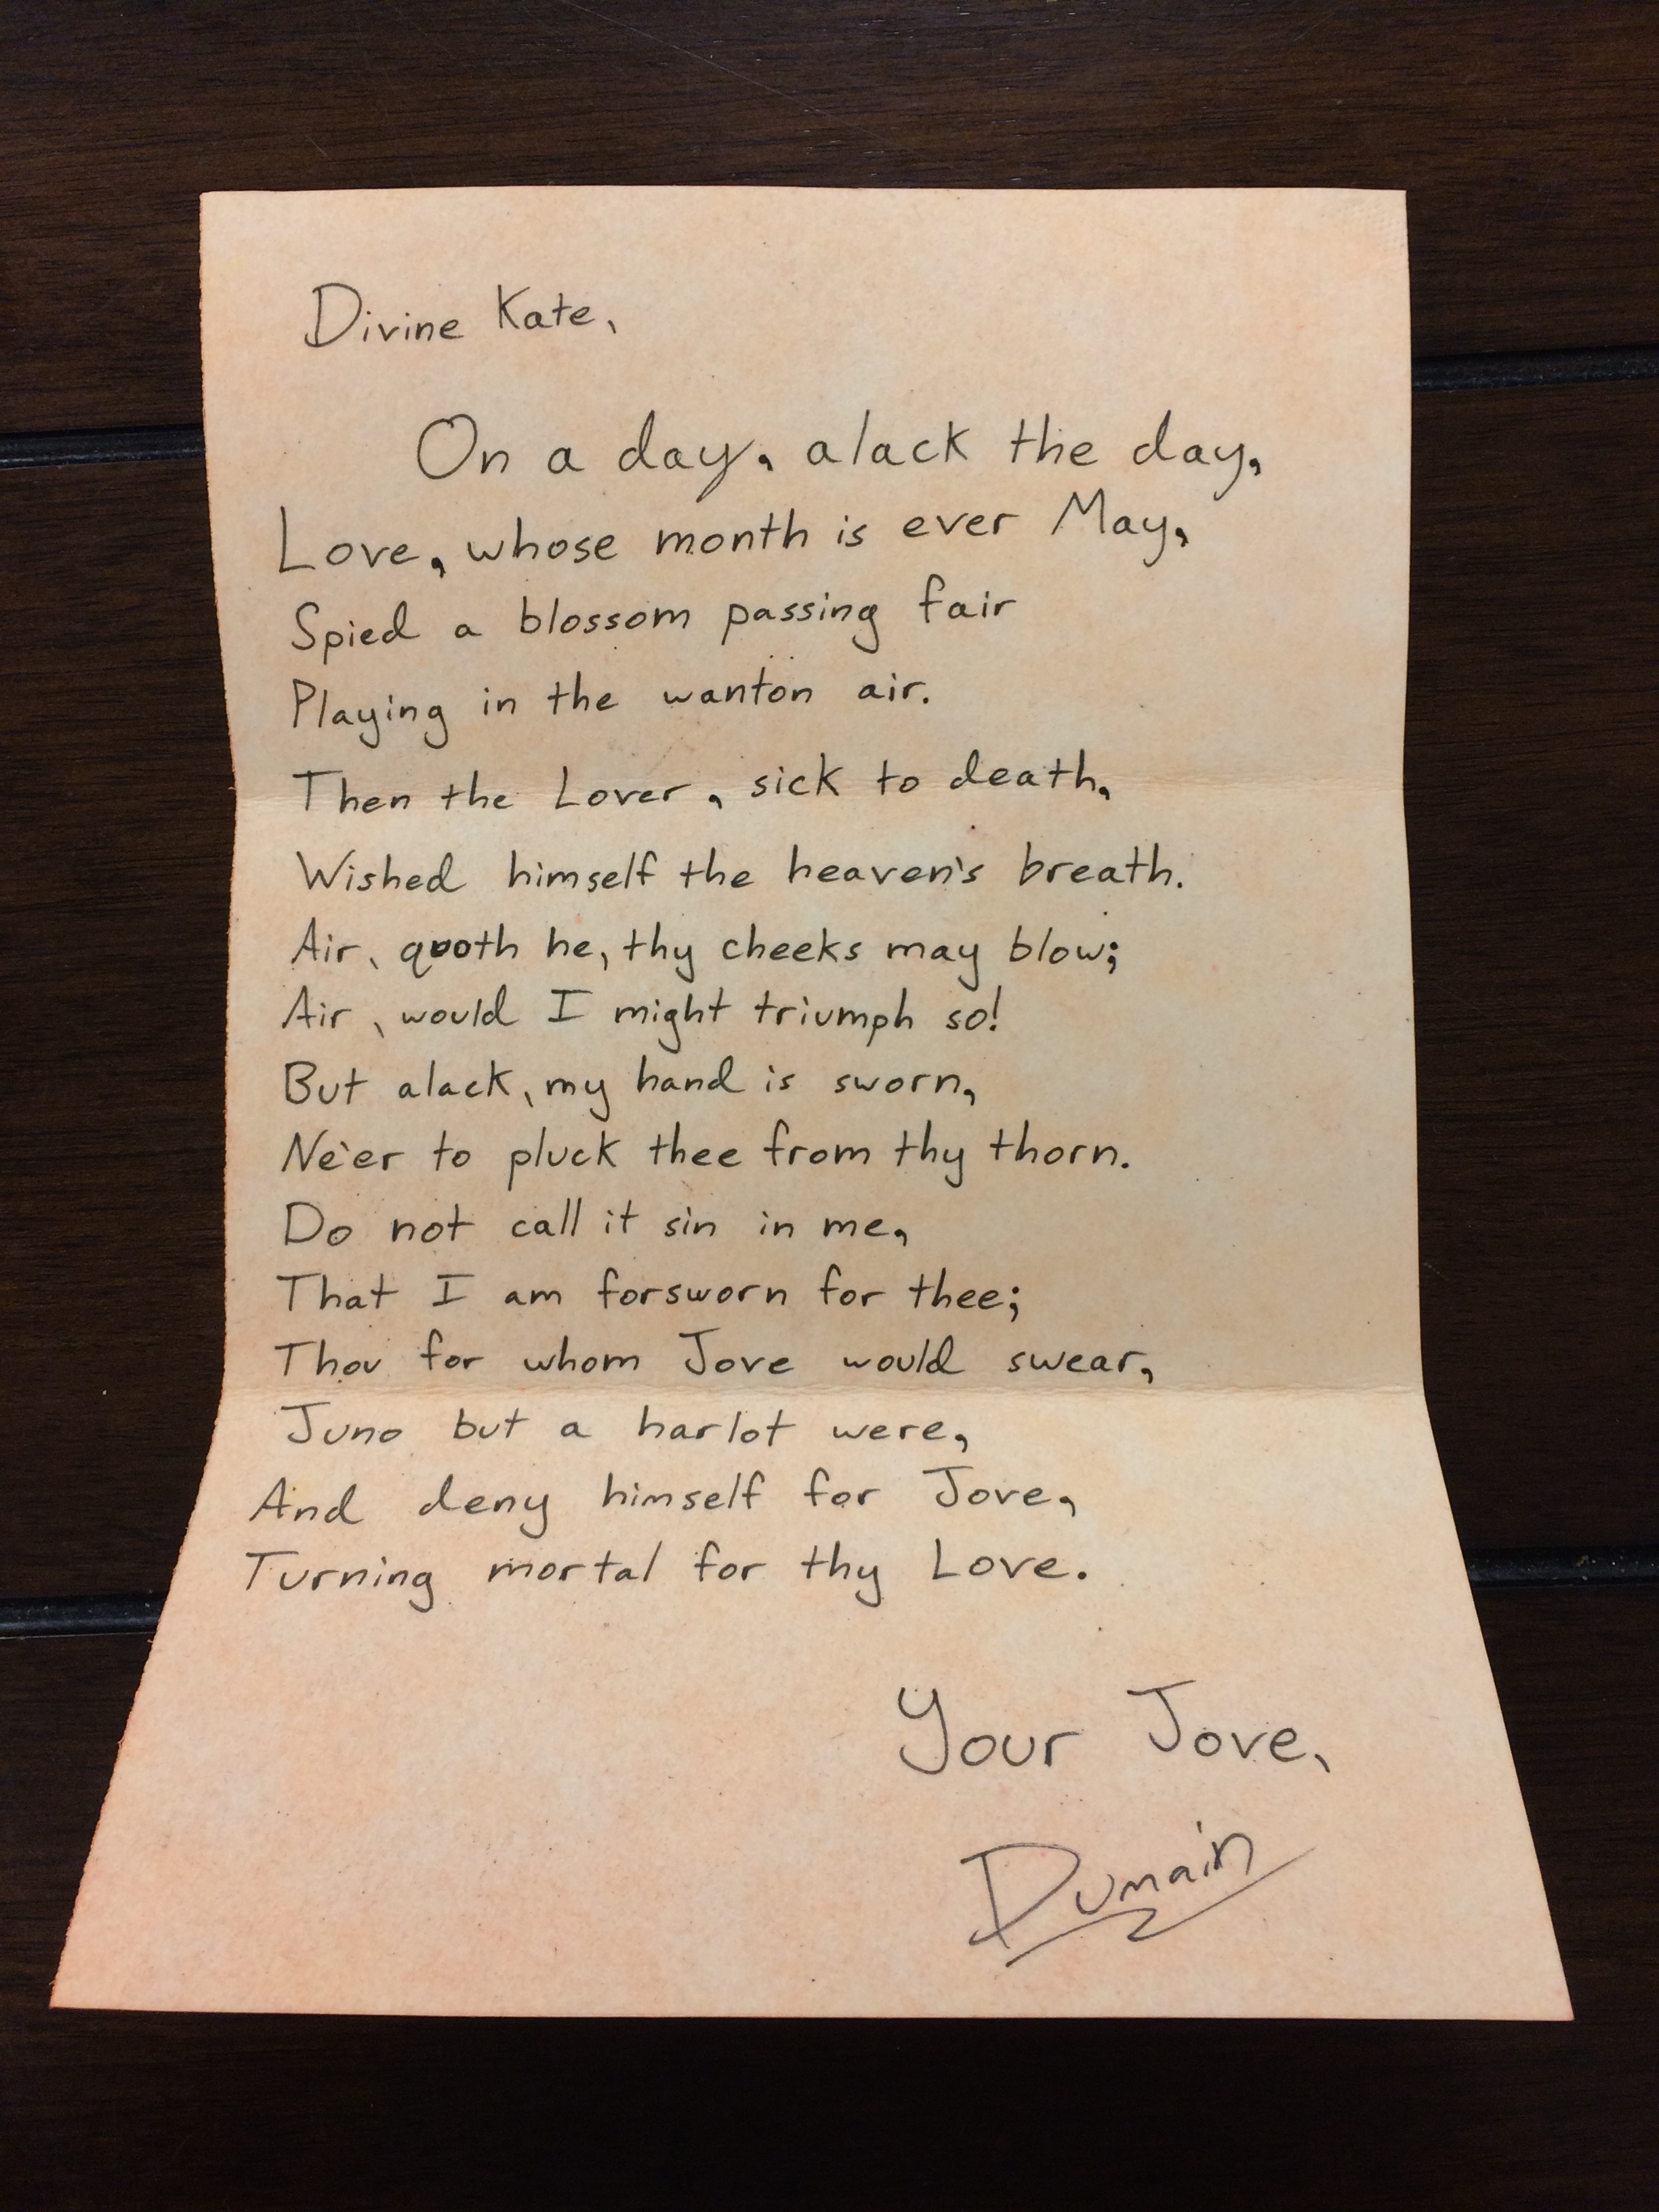 Divine Kate,
On a day, alack the day,
Love, whose month is ever May,
Spied a blossom passing fair
Playing in the wanton air.
Then the Lover, sick to death,
Wished himself the heaven's breath.
Air, quoth he, thy cheeks may blow;
Air, would I might triumph so!
But alack, my hand is sworn,
Ne'er to pluck thee from thy thorn.
Do not call it sin in me,
That I am forsworn for thee;
Thou for whom Jove would swear,
Juno but a harlot were,
And deny himself for Jove,
Turning mortal for thy Love.
Your Jove,
Dumain